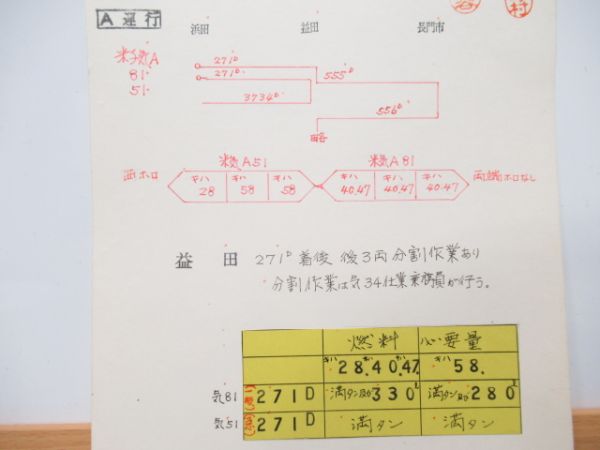 A 運行
村
浜田 益田 長門市
米気A
81
51
271D
271D
555D
3734D
556D
米気A51 米気A81
両ホロ
キハ 28 キハ 58 キハ 58 キハ 40,47 キハ 40,47 キハ 40,47
益田 271D 着後 後3両 分割作業あり
分割作業は気34仕業乗務員が行う。
燃料 必要量
キハ28.キハ40.キハ47 キハ58.
気81 271D 満タン及び330L 満タン及び280L
気51 271D 満タン 満タン